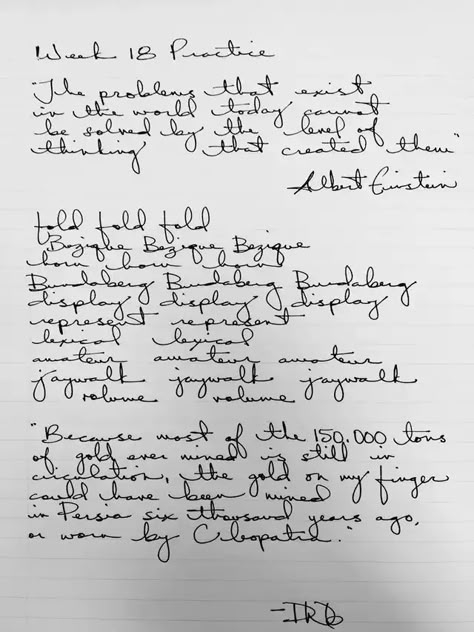 Week 18 Practice
"The problems that exist
in the world today cannot
be solved by the level of
thinking that created them"
Albert Einstein
fold fold fold
Bezique Bezique Bezique
horn horn horn
Bundaberg Bundaberg Bundaberg
display display display
represent represent
lexical lexical
amateur amateur amateur
jaywalk jaywalk jaywalk
volume volume
"Because most of the 150,000 tons
of gold ever mined is still in
circulation, the gold on my finger
could have been mined
in Persia six thousand years ago,
or worn by Cleopatra."